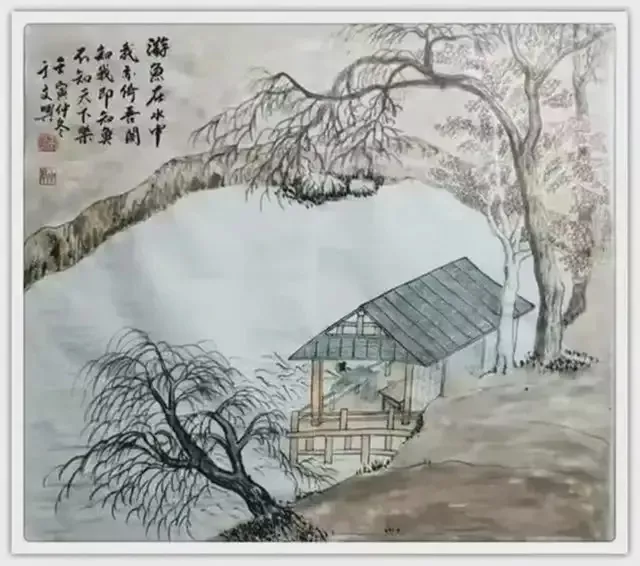 游魚在水中
我亦倚吾閣
知我即知魚
不知天下樂
壬寅仲冬
于文